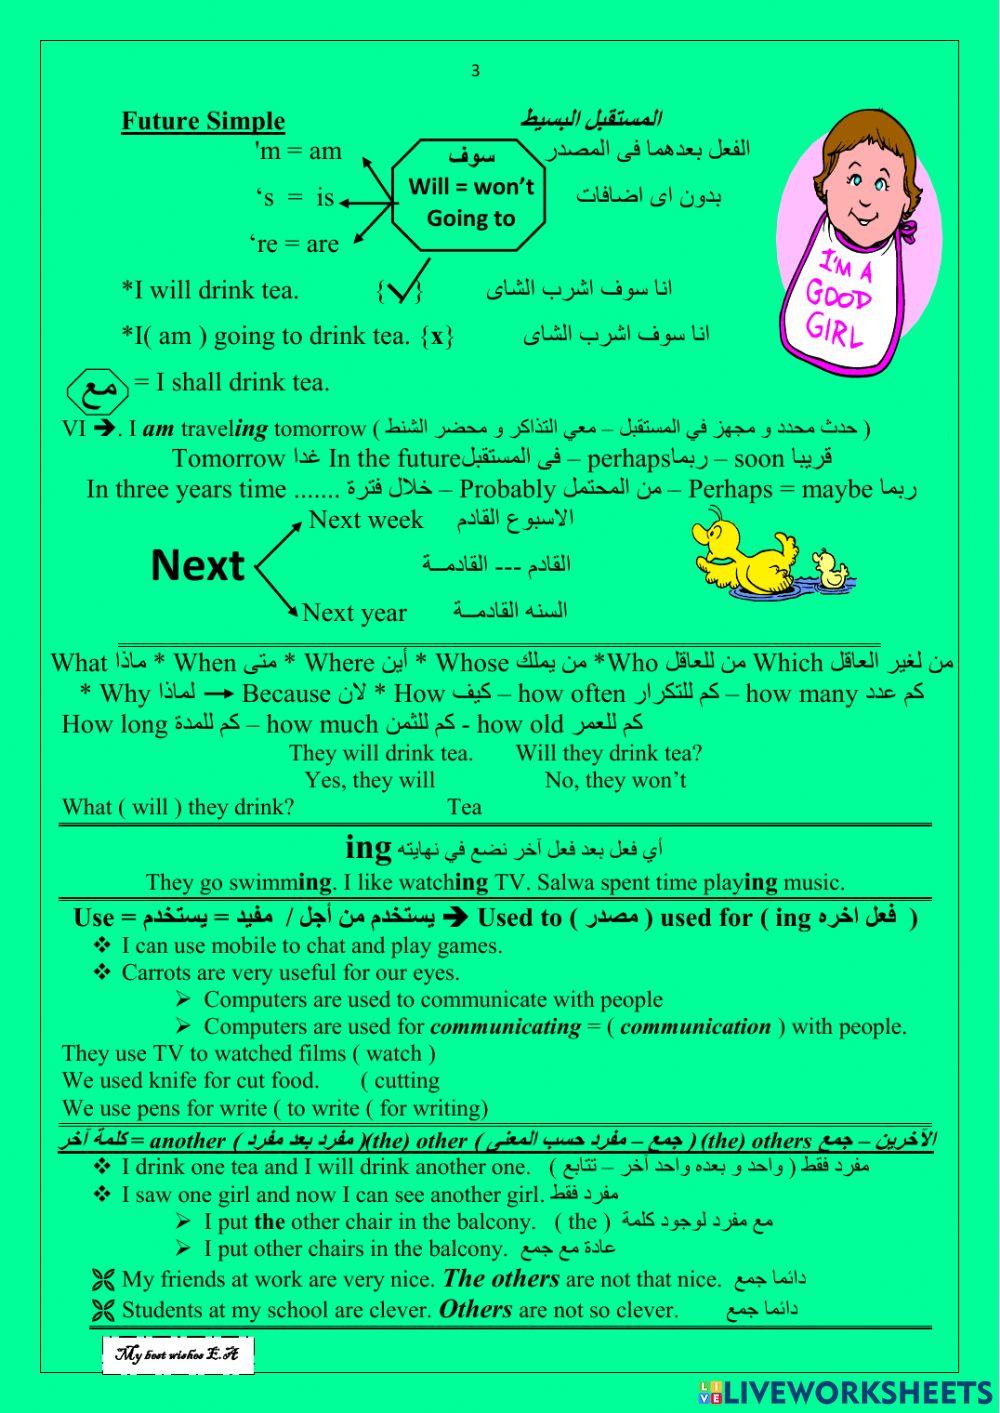 3
Future Simple المستقبل البسيط
'm = am سوف الفعل بعدهما فى المصدر
‘s = is Will = won’t بدون اى اضافات
‘re = are Going to
*I will drink tea. { } انا سوف اشرب الشاى
*I( am ) going to drink tea. {x} انا سوف اشرب الشاى
مع = I shall drink tea.
I'M A
GOOD
GIRL
VI ➔. I am traveling tomorrow ( حدث محدد و مجهز في المستقبل – معي التذاكر و محضر الشنط )
Tomorrow غدا In the future فى المستقبل – perhaps ربما – soon قريبا
In three years time ....... خلال فترة – Probably من المحتمل – Perhaps = maybe ربما
Next week الاسبوع القادم
Next القادم --- القادمـــة
Next year السنه القادمـــة
What ماذا * When متى * Where أين * Whose من يملك *Who من للعاقل Which من لغير العاقل
* Why لماذا → Because لان * How كيف – how often كم للتكرار – how many كم عدد
How long كم للمدة – how much كم للثمن - how old كم للعمر
They will drink tea. Will they drink tea?
Yes, they will No, they won’t
What ( will ) they drink? Tea
أي فعل بعد فعل آخر نضع في نهايته ing
They go swimming. I like watching TV. Salwa spent time playing music.
Use = يستخدم من أجل / مفيد = يستخدم ➔ Used to ( مصدر ) used for ( ing فعل اخره )
❖ I can use mobile to chat and play games.
❖ Carrots are very useful for our eyes.
➢ Computers are used to communicate with people
➢ Computers are used for communicating = ( communication ) with people.
They use TV to watched films ( watch )
We used knife for cut food. ( cutting
We use pens for write ( to write ( for writing)
كلمة آخر = another ( مفرد بعد مفرد )(the) other ( جمع – مفرد حسب المعنى ) (the) others الآخرين – جمع
❖ I drink one tea and I will drink another one. ( مفرد فقط ( واحد و بعده واحد آخر – تتابع
❖ I saw one girl and now I can see another girl. مفرد فقط
➢ I put the other chair in the balcony. ( the ) مع مفرد لوجود كلمة
➢ I put other chairs in the balcony. عادة مع جمع
My friends at work are very nice. The others are not that nice. دائما جمع
Students at my school are clever. Others are not so clever. دائما جمع
My best wishes E.A
LIVE LIVEWORKSHEETS